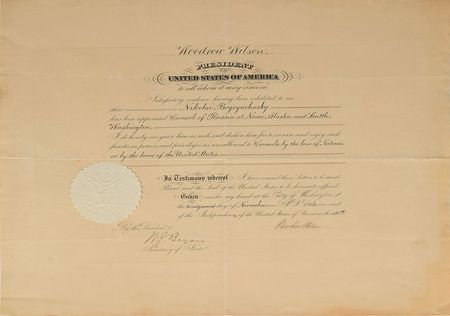 Woodrow Wilson,
PRESIDENT
OF THE
UNITED STATES OF AMERICA
to all whom it may concern:
Satisfactory evidence having been exhibited to me
that Nikolai Bogoyavlensky
has been appointed Consul of Russia at Nome, Alaska, and Seattle,
Washington,
I do hereby recognize him as such and declare him free to exercise and enjoy such
functions, powers and privileges as are allowed to Consuls by the law of Nations
or by the laws of the United States
In Testimony whereof I have caused these Letters to be made
Patent and the Seal of the United States to be hereunto affixed.
Given under my hand at the City of Washington
the day of November, A.D. 1913, and
of the Independence of the United States of America the 138th
By the President:
Woodrow Wilson
W. J. Bryan
Secretary of State.